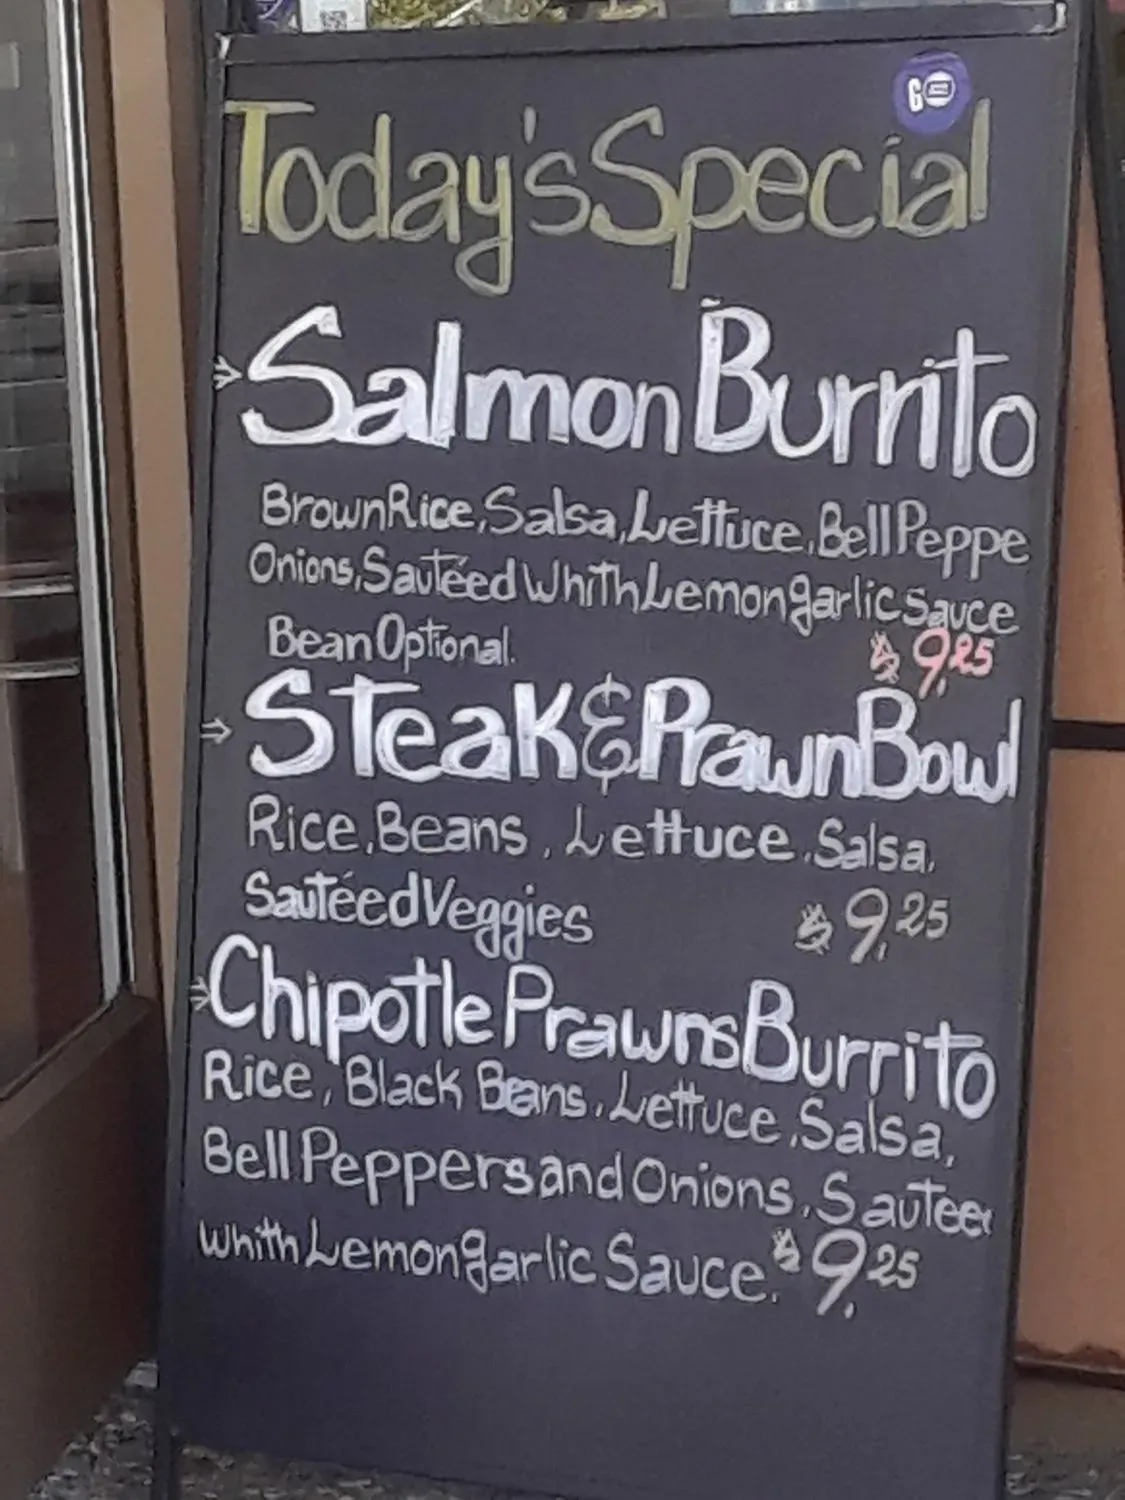 GO
Today's Special
Salmon Burrito
Brown Rice, Salsa, Lettuce, Bell Peppe
Onions, Sautéed Whith Lemon garlic Sauce
Bean Optional. $9.25
Steak & Prawn Bowl
Rice, Beans, Lettuce, Salsa,
Sautéed Veggies $9.25
Chipotle Prawns Burrito
Rice, Black Beans, Lettuce, Salsa,
Bell Peppers and Onions, Sautee
whith Lemon garlic Sauce. $9.25